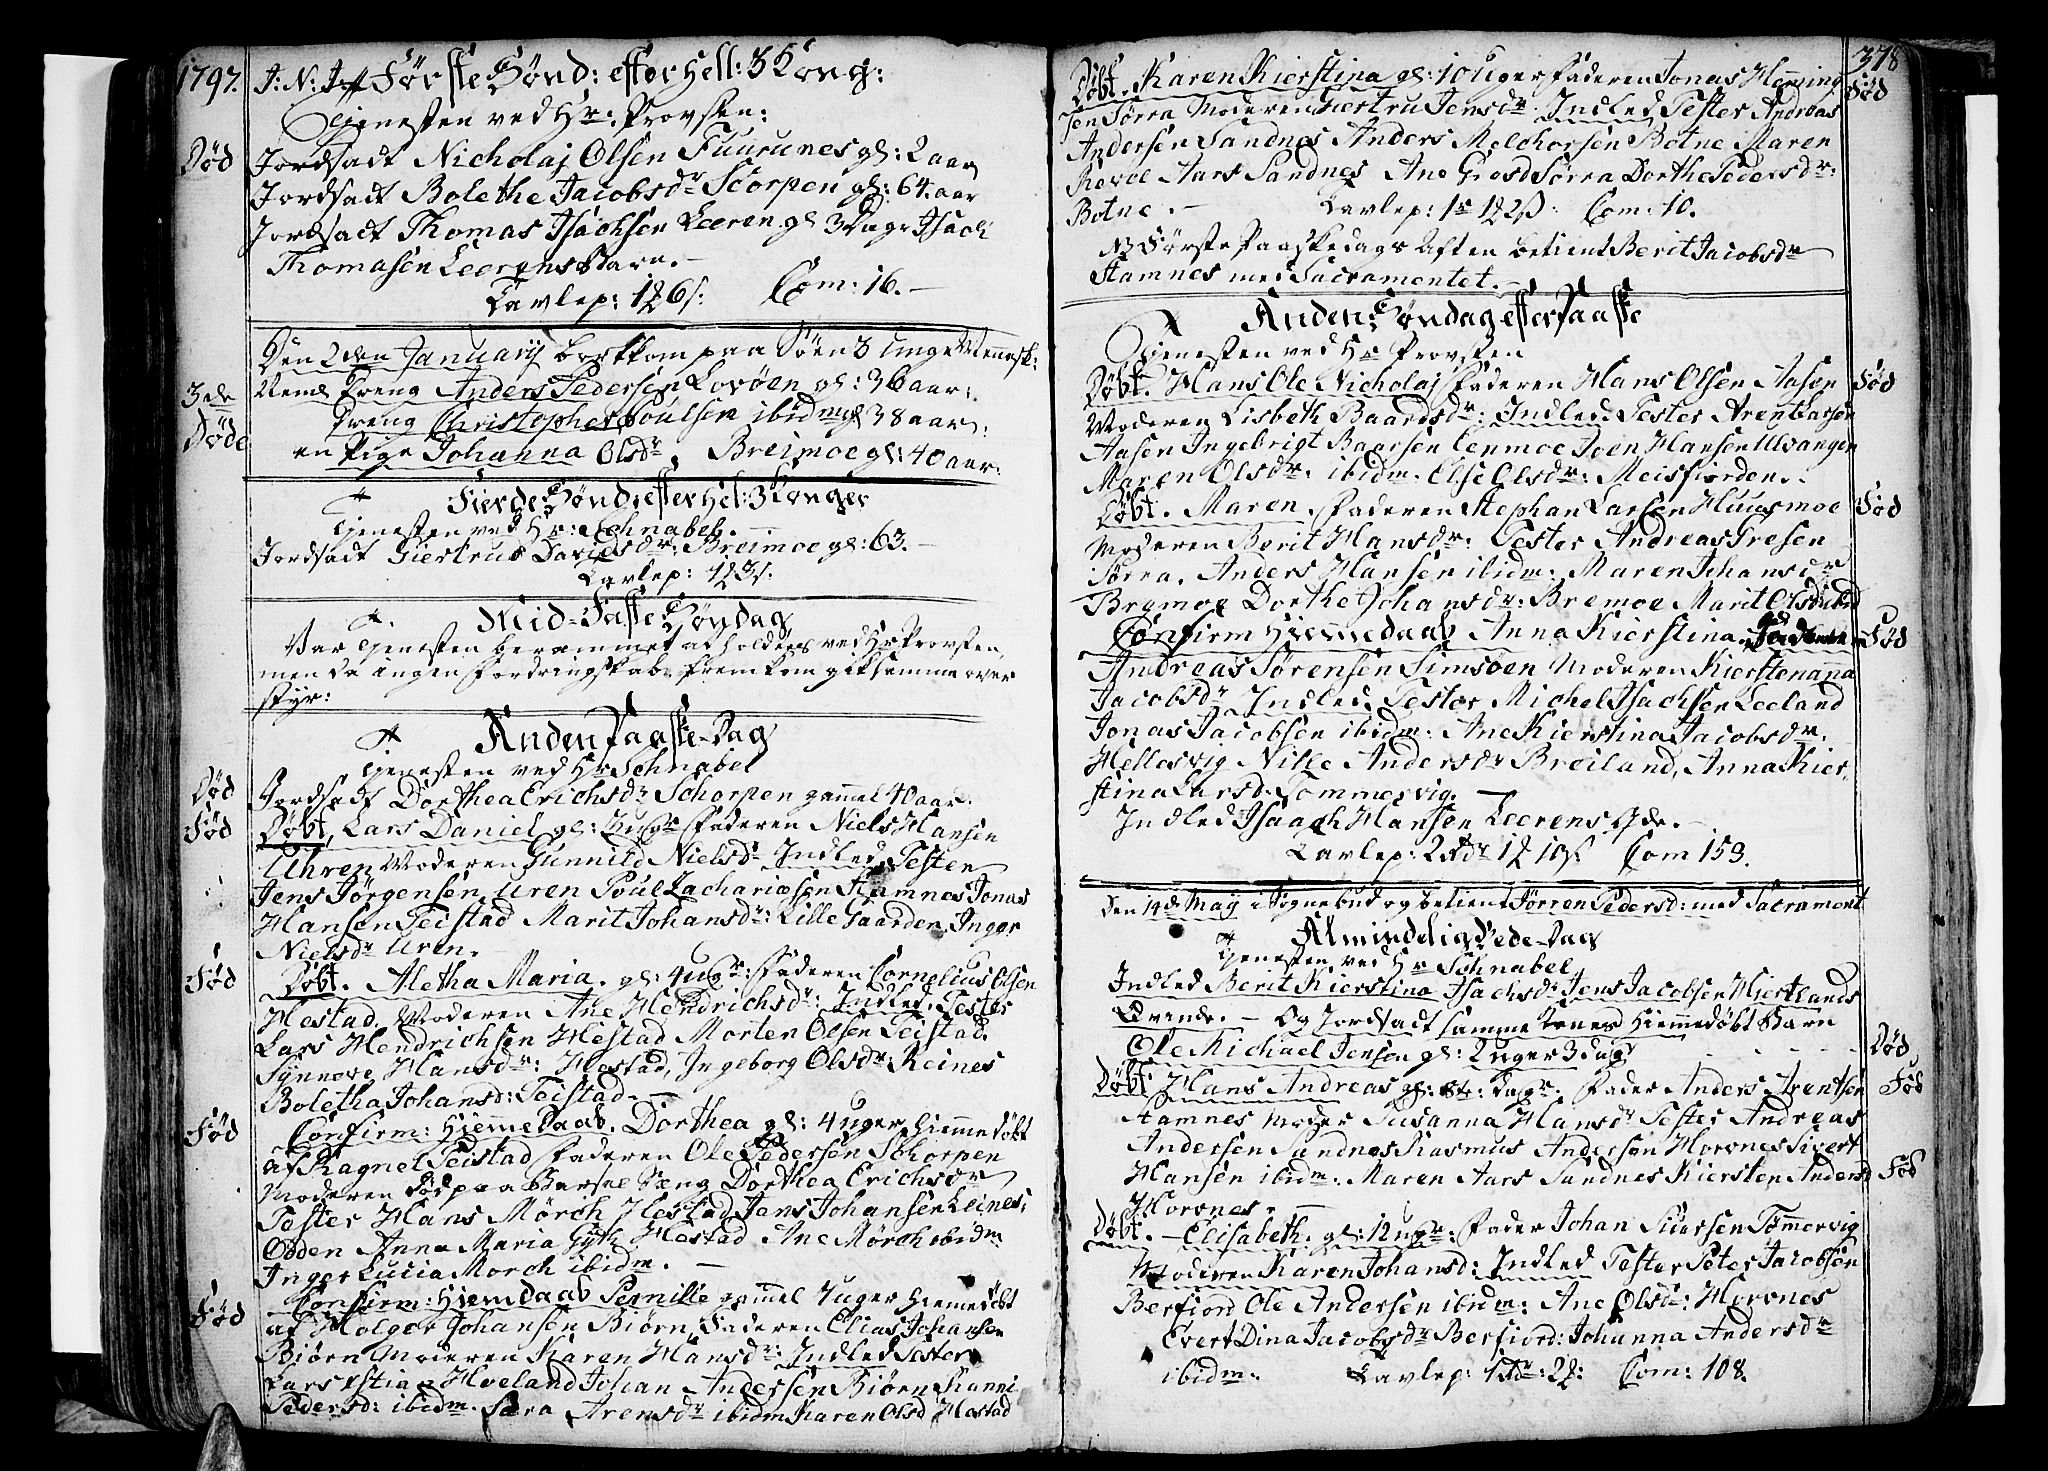 1797. J: N: J: Første Sønd: efter Hell: 3 Kong:
Tjenesten ved Hr: Provsen:
Død Jordsadt Nicholaj Olsen Fuurunes gl: 2 aar
Jordsadt Bolethe Jacobsdr Scorpen gl: 64 aar
Jordsadt Thomas Isachsen Leeren gl 3 Dage Isach
Thomasen Leerens Barn.-
Tavlep: 1 # 6 s: Com: 16.-
Den 2den January bortkom paa Søen 3 unge Mennesk:
3de NemL Dreng Anders Pedersen Lovøen gl: 36 aar:
Døde Dreng Christopher Poulsen ibidm gl 38 aar:
en Pige Johanna Olsdr. Breimoe gl: 40 aar:
Fierde Sønd: efter Hel: 3 Konger
Tjenesten ved Hr: Schnabel.-
Jordsadt Giertrud Davidsdr: Breimoe gl: 63.-
Tavlep: 1 # 3 s:
Mid-Faste Søndag
Var Tjenesten berammet at holdes ved Hr Provsten,
men da ingen Fordringskab fremkom gik samme over
styr:
Anden Paaske-Dag
Tjenesten ved Hr Schnabel
Død Jordsadt Dorthea Erichsdr Schorpen gammel 40 aar.
Fød Døbt, Lars Daniel gl: 3 uger Faderen Niels Hansen
Uhren Moderen Gunnild Nielsdr Indled Tester
Jens Jørgensen Uren Poul Zachariæsen Stamnes Jonas
Hansen Teistad Marit Johansdr: Lille Gaarden, Inger
Nielsdr Uren.-
Fød Døbt. Aletha Maria. gl: 4 ugr: Faderen Cornelius Olsen
Hestad, Moderen Ane Hendrichsdr: Indled, Tester
Lars Hendrichsen Hestad Morten Olsen Teistad.
Synnove Hansdr: Hestad, Ingeborg Olsdr: Reines
Boletha Johansd: Teistad.-
Fød Confirm: Hiemme Daab, Dorthea gl: 4 uger hiemme døbt
af Ragnel Teistad Faderen Ole Pedersen Schorpen
Moderen Død paa Barsel Seng Dorthea Erichsdr
Tester Hans Mörch Hestad Jens Johansen Leines;
Odden Anna Maria Gÿth Hestad Ane Mörch ibidm
Inger Lucia Morch ibidm.-
Fød Confirm: Hiemdaab Pernille gammel 4 uger Hiemedøbt
af Holger Johansen Biørn, Faderen Elias Johansen
Biørn Moderen Karen Hansdr: Indled Tester
Lars Østian Hveland Johan Andersen Biørn Kanni
Pedersd: ibidm. Sara Arensdr ibidm Karen Olsd Hestad
378
Døbt. Karen Kierstina gl: 10 Uger Faderen Jonas Hemming Fød
sen Sørra Moderen Giertru Jensdr. Indled Tester Andreas
Andersen Sandnes Anders Melchorsen Botne Maren
Rovol Aars Sandnes Ane Gros Sørra Dorthe Pedersdr:
Botne.- Tavlep: 1 r 1 # 2 ß: Com: 10.
NB Første Paaskedags Aften betient Berit Jacobsdr
Stamnes med Sacramentet.-
Anden Søndag efter Paaske
Tjenesten ved Hr Provsten
Døbt. Hans Ole Nicholaj Faderen Hans Olsen Aasen Fød
Moderen Lisbeth Baardsdr: Indled: Tester Arent Larsen
Aasen Ingebrigt Baarsen Lenmoe Joen Hansen Ulvangen
Maren Olsdr. ibidm. Else Olsdr: Meisfiorden.
Døbt. Maren. Faderen Stephan Larsen Huusmoe Fød
Moderen Berit Hansdr: Tester Andreas Iresen
Sørra. Anders Hansen ibidm: Maren Johansdr
Brymoe Dorthe Johansdr: Bremoe Marit Olsdr ibid
Confirm Hiemmedaab Anna Kierstina Faderen Fød
Andreas Sørensen Simsøen Moderen Kierstenana
Jacobsdr Indled, Tester Michel Isachsen Leeland
Jonas Jacobsen ibidm: Ane Kierstina Jacobsdr.
Hellesvig Nille Andersdr Breiland, Anna Kier,
stina Larsd. Tommervig.-
Indled Isaach Hansen Leerens Qde.-
Tavlep: 2 rdr 1 # 10 s. Com 159.
Den 14de May i Sognebud og betient Sørren Pedersd: med Sacrament
Almindelig Bede-Dag
Tjenesten ved Hr Schnabel
Indled Berit Kierstina Isachsdr Jens Jacobsen Hiertlands
Qvinde.- Og Jordsadt samme Jenses Hiemmedøbt Barn
Ole Michael Jensen gl: 2 uger 3 dage Død
Døbt Hans Andreas gl: 8te: Dagr. Fader Anders Arentsen Fød
Stamnes Moder Susanna Hansdr Tester Andreas
Andersen Sandnes Rasmus Andersen Horvnes Sivert
Hansen ibidm: Maren Aars Sandnes Kiersten Andersd Fød
Horvnes.-
Døbt.- Elisabeth. gl: 12 ugr: Fader Johan Siursen Tømervig
Moderen Karen Johansd: Indled Tester Peter Jacobsen
Berfiord Ole Andersen ibidm: Ane Olsdr: Horvnes
Evert Dina Jacobsdr Berfiord: Johanna Andersdr
ibidm. Tavlep: 1 rdr: 2 #: Com: 108.